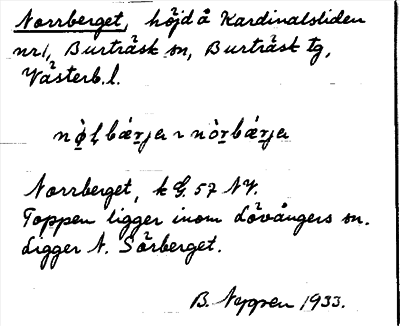 Norrberget, höjd å Kardinalsliden
nr 1, Burträsk sn, Burträsk tg,
Västerb. l.
Norrberget, k G. 57 NV.
Toppen ligger inom Lövångers sn.
Ligger N. Sörberget.
B. Nygren 1933.